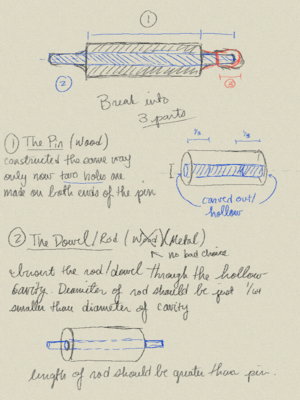 ①
②
③
Break into
3 parts
① The Pin (wood)
constructed the same way
only now two holes are
made on both ends of the pin
carved out/
hollow
② The Dowel/Rod (Wood) (Metal)
no bad choice
Insert the rod/dowel through the hollow
cavity. Diameter of rod should be just
smaller than diameter of cavity
length of rod should be greater than pin.